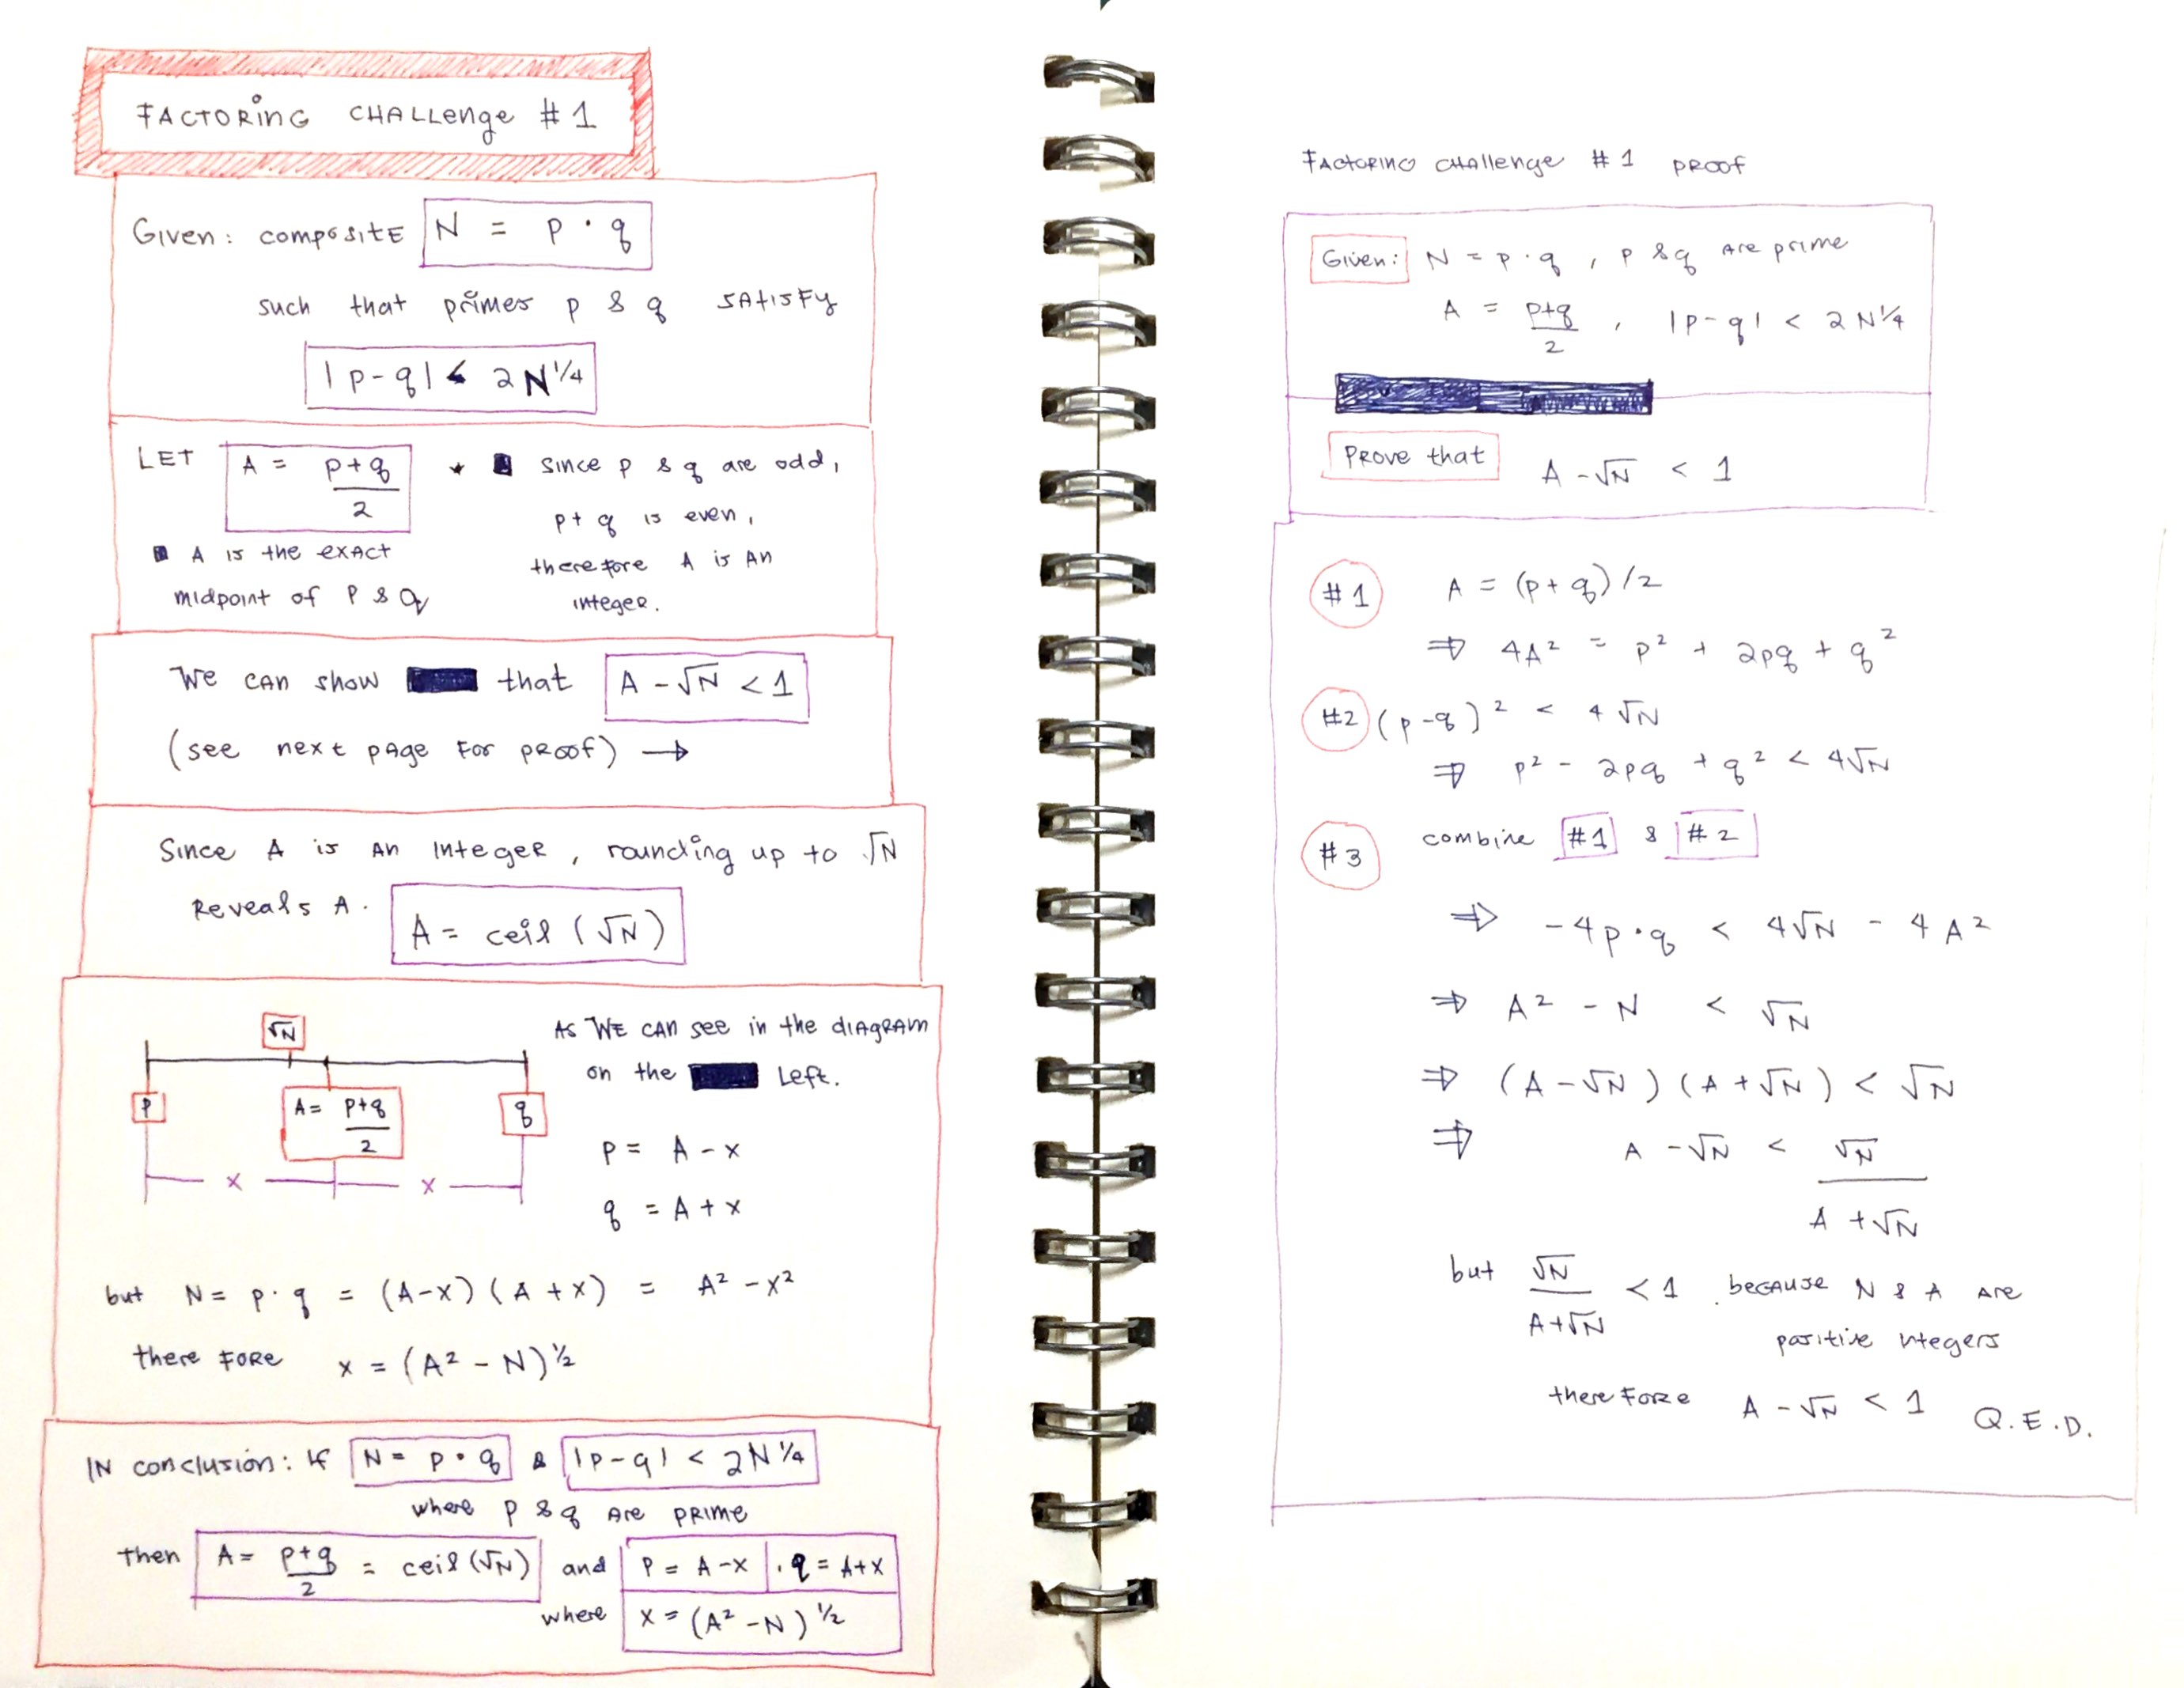 FACTORING CHALLENGE # 1
Given: composite N = p · q
such that primes p & q satisfy
|p-q| < 2N^1/4
LET A = p+q/2
A is the exact
midpoint of P & q
* since p & q are odd,
p+q is even,
therefore A is An
integer.
We can show that A - √N < 1
(see next page for proof) →
Since A is an integer, rounding up to √N
Reveals A. A = ceil (√N)
√N
p
A = p+q/2
q
x
x
As we can see in the diagram
on the Left.
p = A - x
q = A + x
but N = p · q = (A-x)(A+x) = A² - x²
therefore x = (A² - N)^½
In conclusion: If N = p · q & |p-q| < 2N^1/4
where p & q are prime
then A = p+q/2 = ceil (√N) and p = A-x , q = A+x
where x = (A² - N)^½
Factoring Challenge # 1 Proof
Given: N = p · q , p & q are prime
A = p+q/2 , |p-q| < 2N^1/4
Prove that A - √N < 1
#1 A = (p+q)/2
⇒ 4A² = p² + 2pq + q²
#2 (p-q)² < 4√N
⇒ p² - 2pq + q² < 4√N
#3 combine #1 & #2
⇒ -4p·q < 4√N - 4A²
⇒ A² - N < √N
⇒ (A-√N)(A+√N) < √N
⇒ A - √N < √N/A+√N
but √N/A+√N < 1 because N & A are
positive integers
therefore A - √N < 1 Q.E.D.